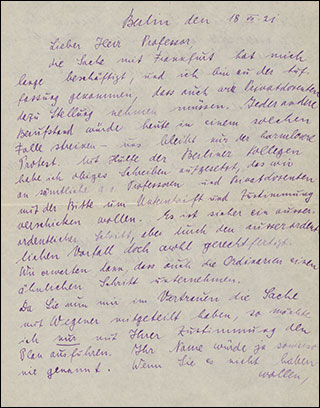 Berlin den 18 VI 21
Lieber Herr Professor,
die Sache mit Frankfurt hat mich
lange beschäftigt, und ich bin zu der Auf-
fassung gekommen, dass auch wir Privatdozenten
dazu Stellung nehmen müssen. Jeder andere
Berufstand würde heute in einem solchen
Falle streiken – uns bleibt nur der harmlosere
Protest. Mit Hilfe der Berliner Kollegen
habe ich obiges Schreiben aufgesetzt, das wir
an sämtliche Professoren und Privatdozenten
mit der Bitte um Unterschrift und Zustimmung
verschicken wollen. Es ist sicher ein ausser-
ordentlicher Schritt, aber durch den ausserordent
lichen Vorfall doch wohl gerechtfertigt.
Wir erwarten dann, dass auch die Ordinarien einen
ähnlichen Schritt unternehmen.
Da Sie nun mir im Vertrauen die Sache
mit Wegener mitgeteilt haben, so möchte
ich nur mit Ihrer Zustimmung den
Plan ausführen. Ihr Name würde ja sowieso
nie genannt. Wenn Sie es nicht haben
wollen,